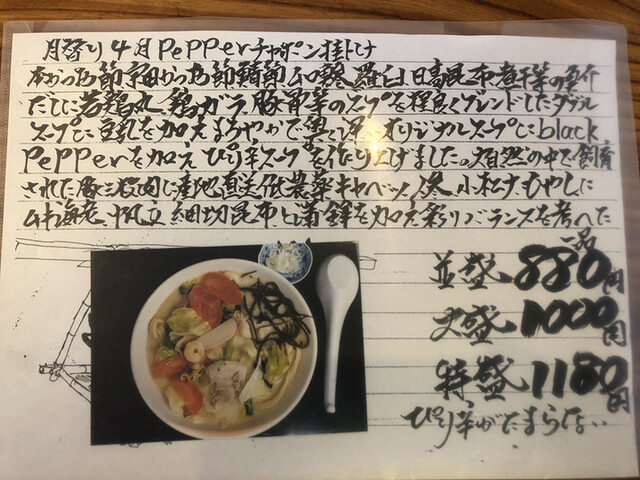 月替り4月Pepperチャポン掛け
本かつお節宗田かつお節鯖節ムロ鰺羅臼日高昆布煮干等の魚介
だしに若鶏丸、鶏ガラ、豚骨等のスープを程良くブレンドしたダブル
スープに豆乳を加えまろやかで奥深いオリジナルスープにblack
Pepperを加えぴり辛スープを作り上げました。自然の中で飼育
された豚三枚肉に産地直送低農薬キャベツ人参、小松ナもやしに
ムキ海老、帆立、細切昆布と蒲鉾を加え彩りバランスを考へた
一品
並盛880円
大盛1000円
特盛1180円
ぴり辛がたまらない